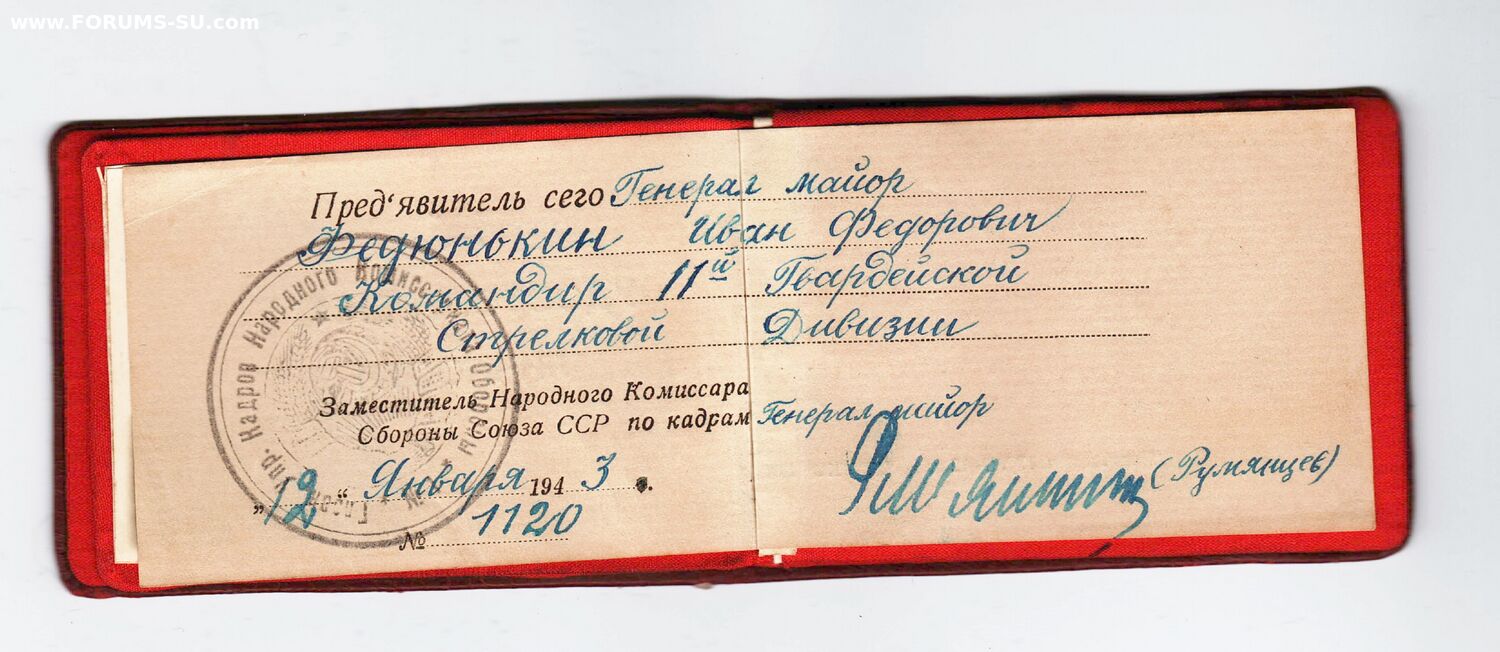 www.FORUMS-SU.com
Пред‘явитель сего Генерал майор
Федюнькин Иван Федорович
Командир 11й Гвардейской
Стрелковой Дивизии
Заместитель Народного Комиссара
Обороны Союза ССР по кадрам Генерал майор
(Румянцев)
„12“ Января 1943 г.
№ 1120
Упр. Кадров Народного Комиссариата Обороны